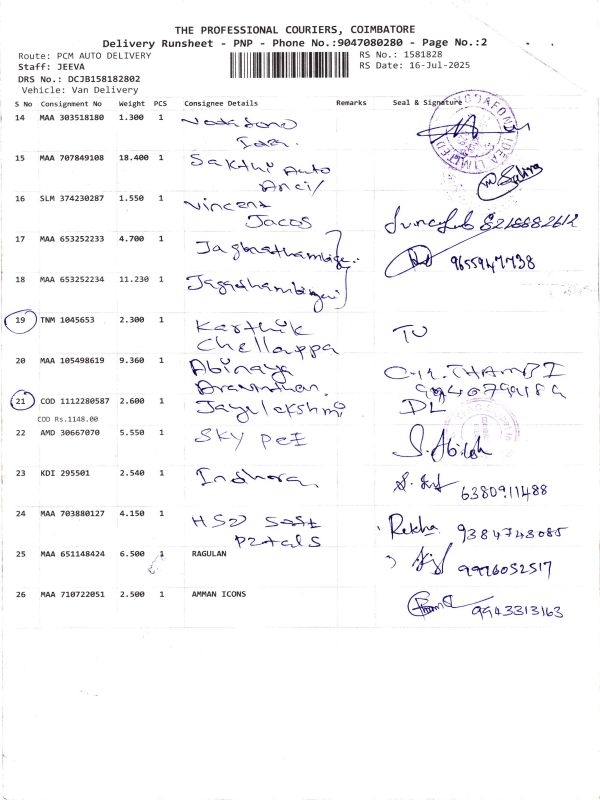 THE PROFESSIONAL COURIERS, COIMBATORE
Delivery Runsheet - PNP - Phone No.:9047080280 - Page No.:2
Route: PCM AUTO DELIVERY
RS No.: 1581828
Staff: JEEVA
RS Date: 16-Jul-2025
DRS No.: DCJB158182802
Vehicle: Van Delivery
S No Consignment No Weight PCS Consignee Details Remarks Seal & Signature
14 MAA 303518180 1.300 1
VODAFONE IDEA LIMITED
15 MAA 707849108 18.400 1 Sakthi Auto
Ancil
16 SLM 374230287 1.550 1 Vincent
Jacos 8218882612
17 MAA 653252233 4.700 1 9655947738
18 MAA 653252234 11.230 1
19 TNM 1045653 2.300 1 Karthik TU
Chellappa
20 MAA 105498619 9.360 1 Abinaya THAMBI
21 COD 1112280587 2.600 1 DL
COD Rs.1148.00
22 AMD 30667070 5.550 1 SKY PEI S. Abilash
23 KDI 295501 2.540 1 6380911488
24 MAA 703880127 4.150 1 Rekha 9384743085
25 MAA 651148424 6.500 1 RAGULAN 9996052517
26 MAA 710722051 2.500 1 AMMAN ICONS 9943313163